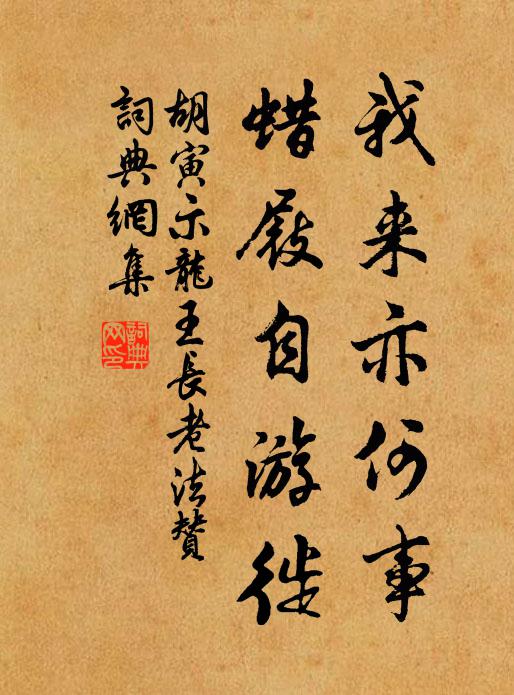 我来亦何事
蜡屐自游徙
胡寅示龍王長老法贊
詞典網集
詞典网印